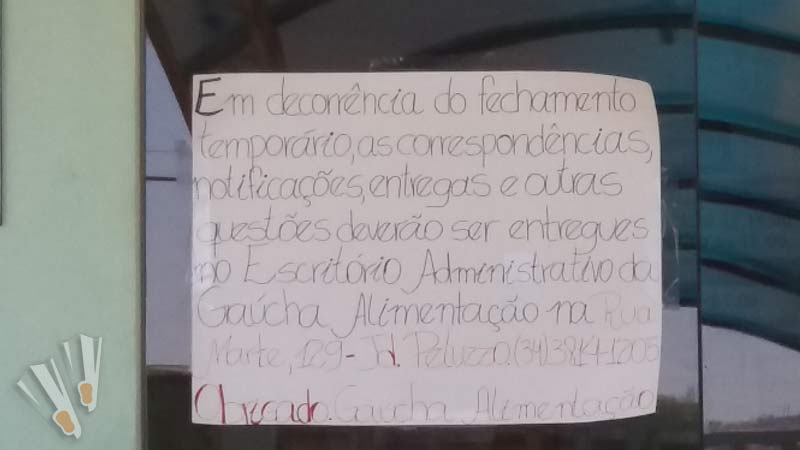 Em decorrência do fechamento
temporário, as correspondências,
notificações, entregas e outras
questões deverão ser entregues
no Escritório Administrativo da
Gaúcha Alimentação na Rua
Marte, 129 - Jd. Peluzzo. (34) 3814-1205
Obrigado. Gaúcha Alimentação